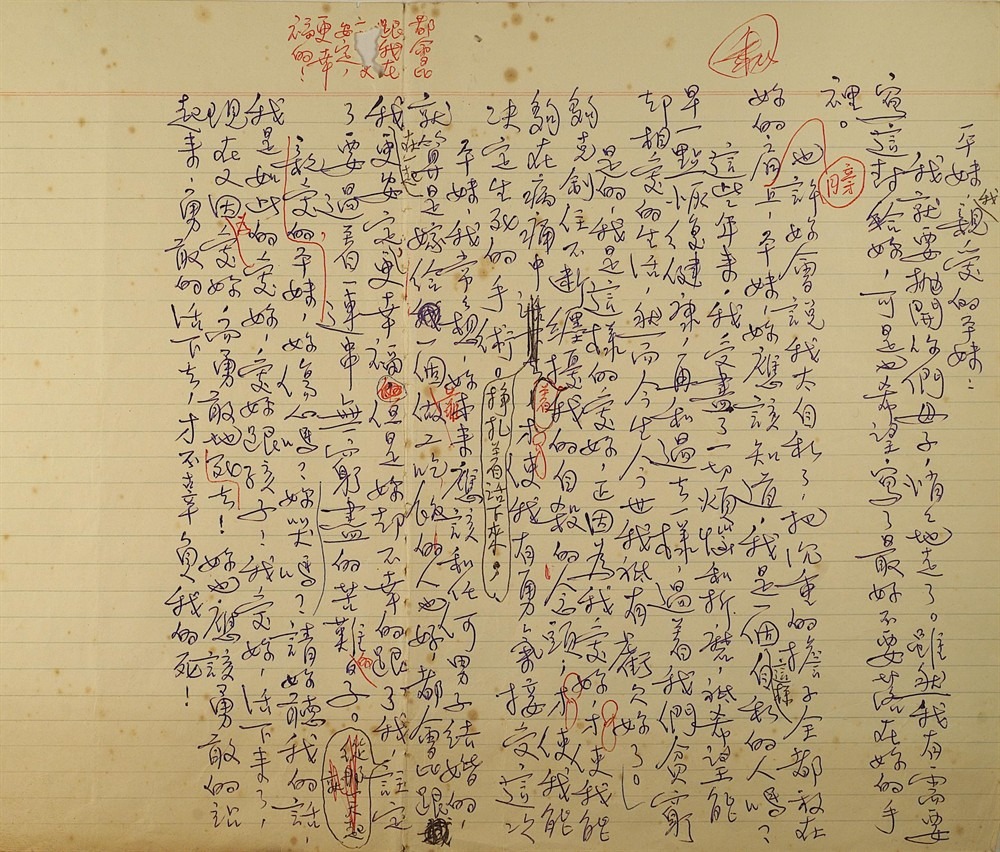 平妹——我親愛的平妹：
我就要拋開你們母子，悄々地走了。雖然我有需要
寫這封給妳，可是也希望寫了最好不要落在妳的手
裡。
也許妳會說我太自私了，把沉重的擔子全都放在
妳的肩上，平妹，妳應該知道，我是一個這樣自私的人嗎？
這些年來，我受盡了一切煩惱和折磨，祇希望能
早一點恢復健康，再和過去一樣，過着我們貧窮
却相愛的生活，然而今生今世我祇有虧欠妳了。
是的，我是這樣的愛妳，正因為我愛妳，才使我能
夠克制住不斷纏擾着我的自殺的念頭，才使我能
夠在病痛中挣扎着活下來，才使我有勇氣接受這次
決定生死的手術。
平妹，我常々想，妳本來應該和任何男子結婚的，
就算是嫁給一個做工吃飯的人也好，都會比跟
我在一起更安定更幸福的但是妳却不幸的跟了我，註定
了要過着一連串無窮盡的苦難的日子。
親愛的平妹，妳傷心嗎？妳哭嗎？請妳聽我的話，
我是如此的愛妳，愛妳跟孩子！我愛妳，活下來了，
現在又因為愛妳，而勇敢地死去！妳也應該勇敢的站
起來，勇敢的活下去，才不辜負我的死！
都會比
跟我在
一
安定，
更幸
福的！